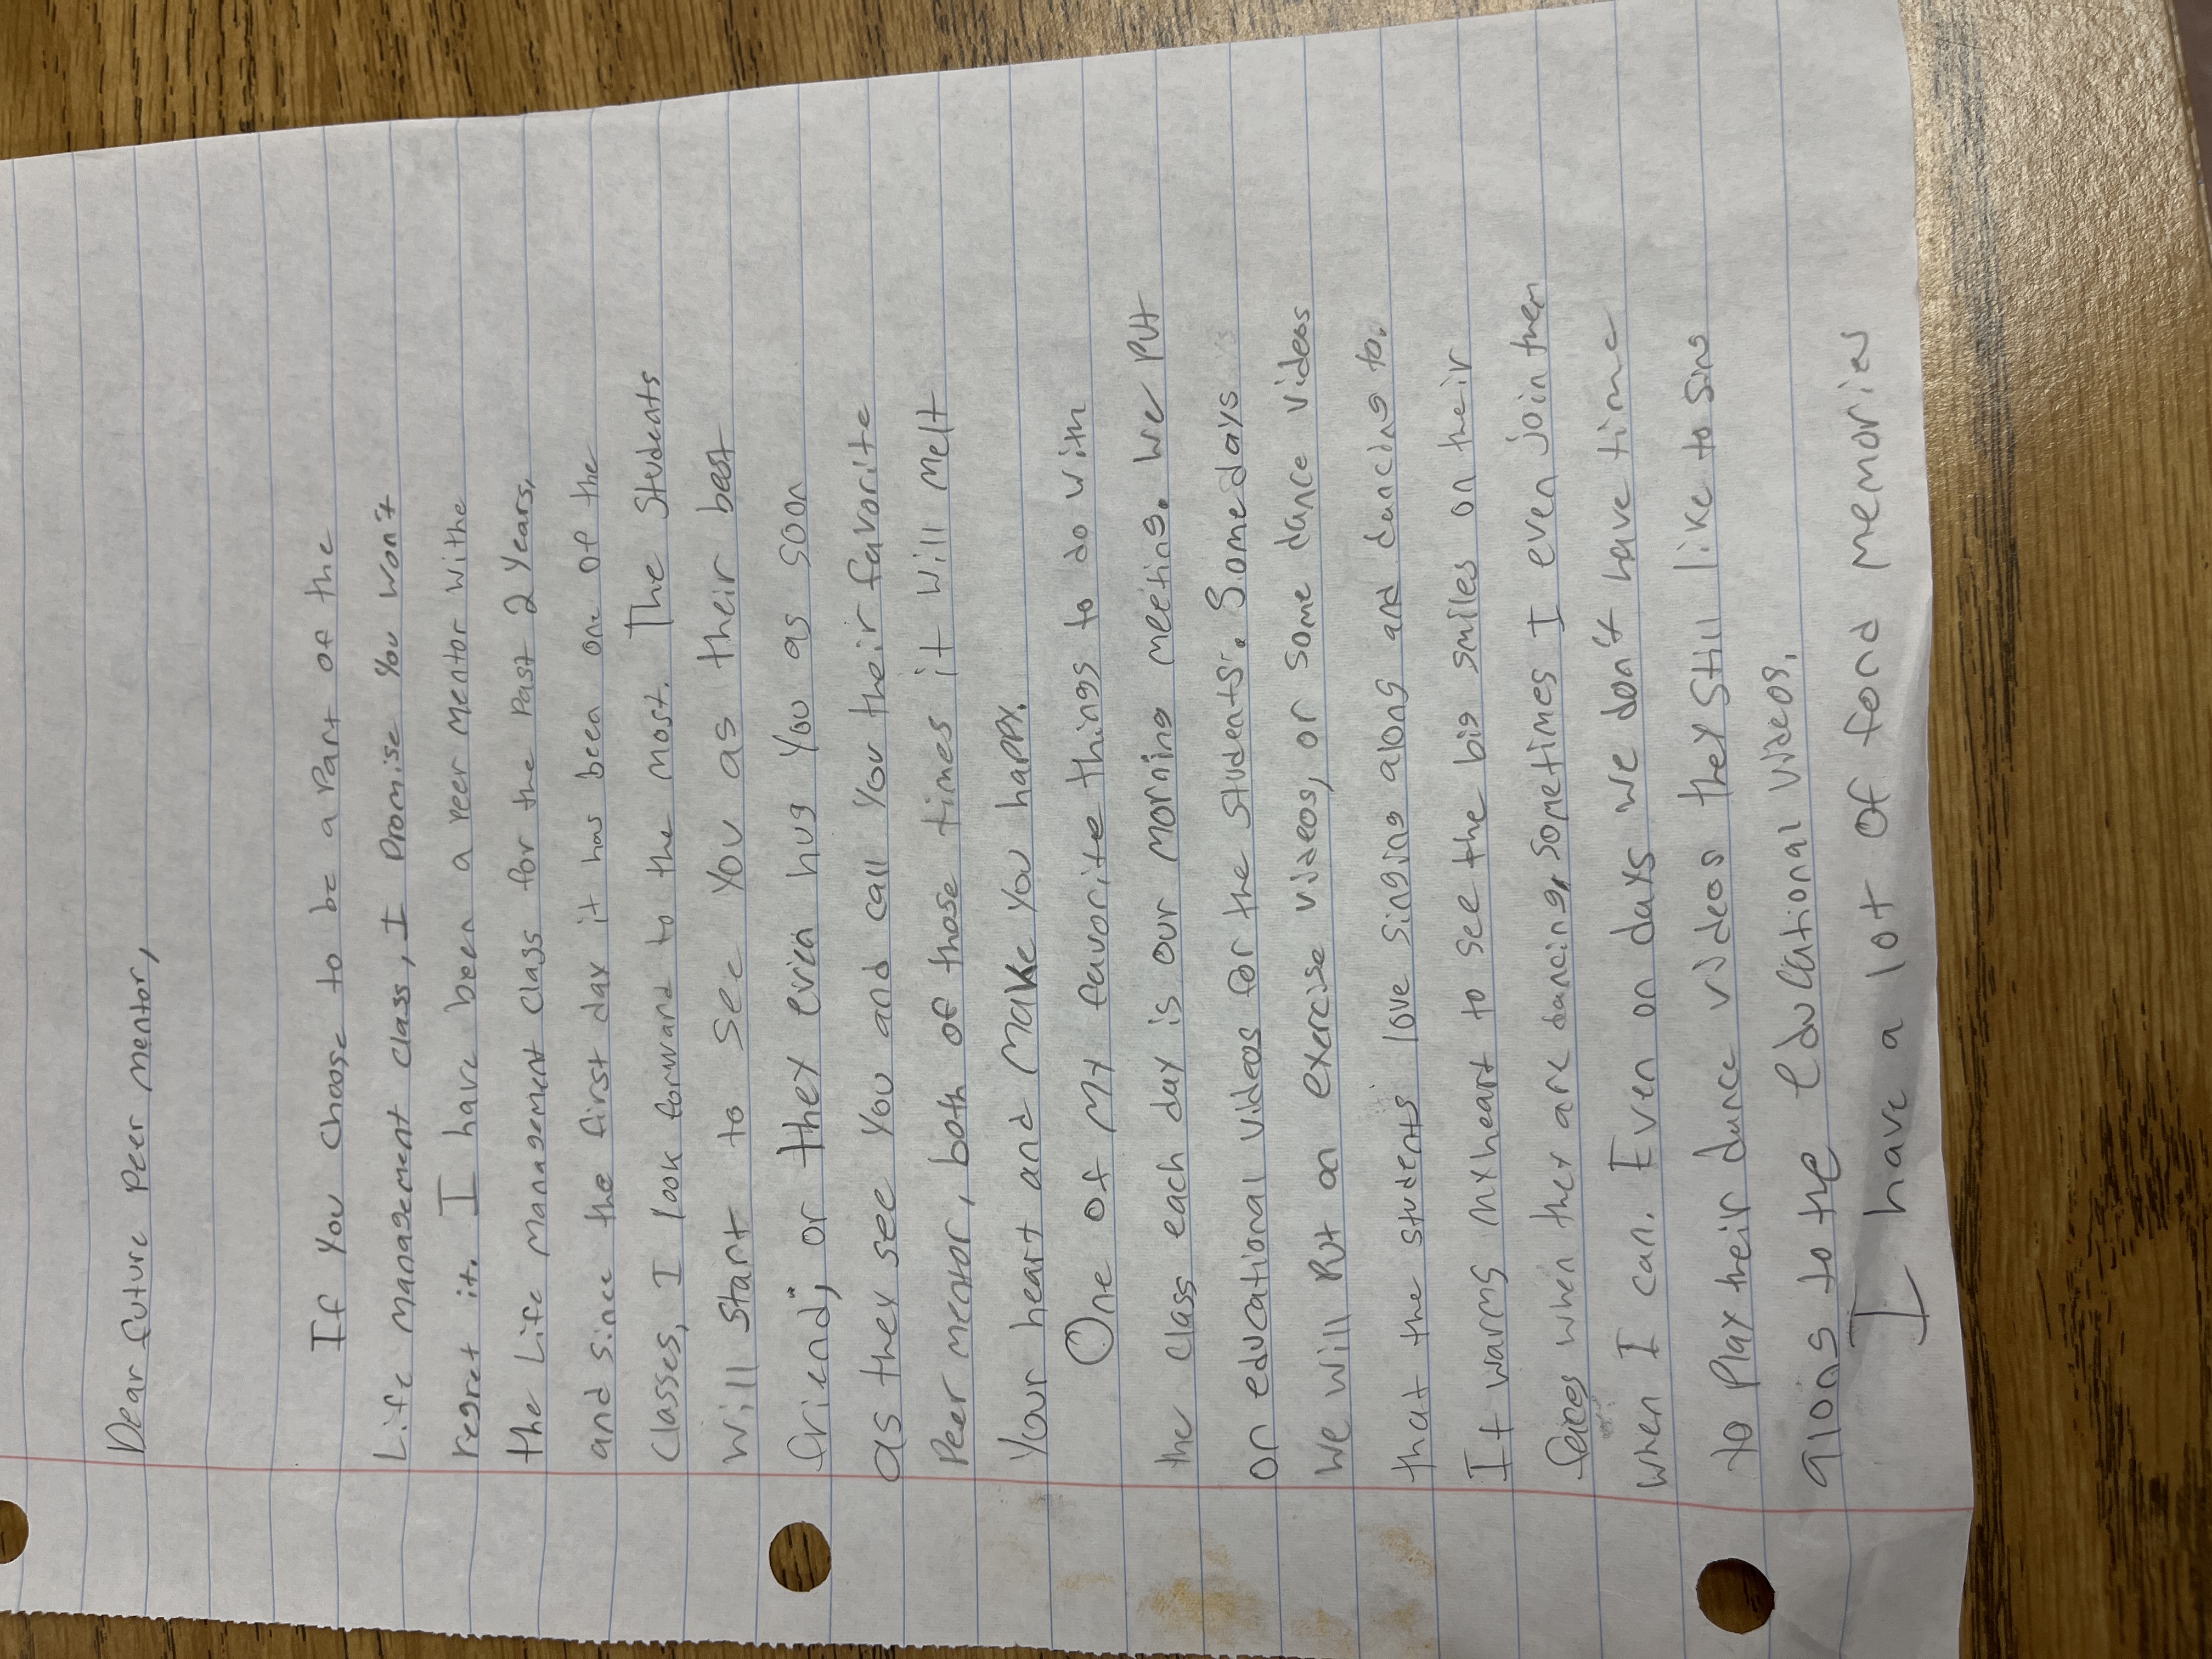 Dear future Peer mentor,
If you choose to be a part of the
Life management class, I promise you won't
regret it. I have been a peer mentor withe
the Life management class for the past 2 years,
and since the first day it has been one of the
classes, I look forward to the most. The students
will start to see you as their best
friend, or they even hug you as soon
as they see you and call you their favorite
Peer mentor, both of those times it will melt
your heart and make you happy.
One of my favorite things to do with
the class each day is our morning meeting. We put
on educational videos for the students. Somedays
we will put on exercise videos, or some dance videos
that the students love singing along and dancing to.
It warms my heart to see the big smiles on their
faices when they are dancing, sometimes I even join them
when I can. Even on days we don't have time
to play their dance videos they still like to sing
along to the educational videos.
I have a lot of fond memories